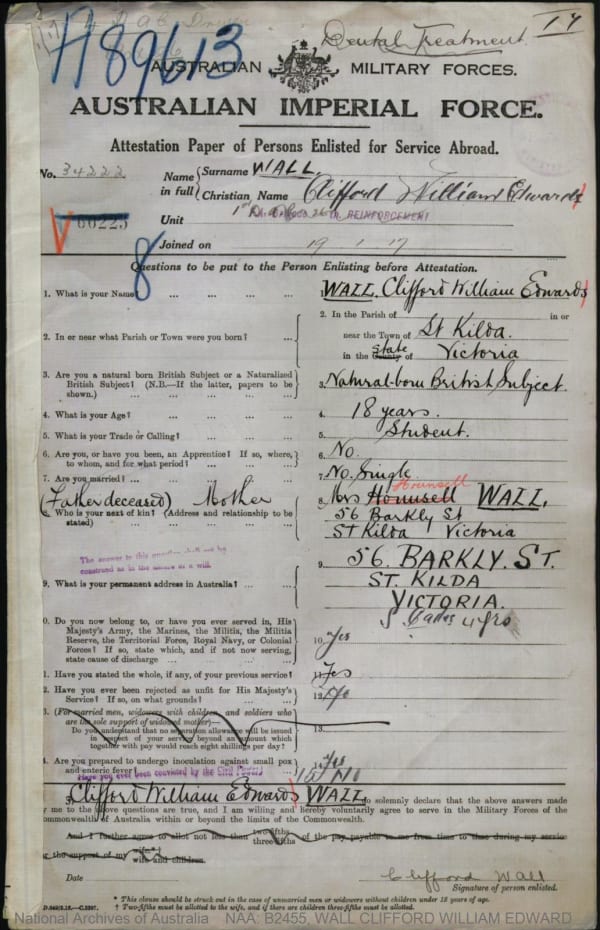 H89613
Dental Treatment.
17
AUSTRALIAN MILITARY FORCES.
AUSTRALIAN IMPERIAL FORCE.
Attestation Paper of Persons Enlisted for Service Abroad.
No. 34222
Name in full { Surname WALL.
Christian Name Clifford William Edwards
00225
Unit REINFORCEMENT
Joined on 19 . 1 . 17
8
Questions to be put to the Person Enlisting before Attestation.
1. What is your Name? ... ... ... ... 1. WALL. Clifford William Edwards
2. In or near what Parish or Town were you born? ... 2. In the Parish of in or
near the Town of St Kilda.
in the County State of Victoria
3. Are you a natural born British Subject or a Naturalized British Subject? (N.B.—If the latter, papers to be shown.) ... 3. Natural-born British Subject.
4. What is your Age? ... ... ... ... 4. 18 years.
5. What is your Trade or Calling? ... ... ... 5. Student.
6. Are you, or have you been, an Apprentice? If so, where, to whom, and for what period? ... 6. No.
7. Are you married? ... ... ... ... 7. No. Single
(Father deceased) Mother
8. Who is your next of kin? (Address and relationship to be stated) ... 8. Mrs Hounsell Hounsell WALL.
56 Barkly St
St Kilda Victoria
The answer to this question shall not be
construed as in the nature of a will.
9. What is your permanent address in Australia? ... 9. 56. BARKLY. ST.
ST. KILDA
VICTORIA.
0. Do you now belong to, or have you ever served in, His Majesty's Army, the Marines, the Militia, the Militia Reserve, the Territorial Force, Royal Navy, or Colonial Forces? If so, state which, and if not now serving, state cause of discharge ... 10. Yes S. Cadets 4 yrs
1. Have you stated the whole, if any, of your previous service? 11. Yes
2. Have you ever been rejected as unfit for His Majesty's Service? If so, on what grounds? ... 12. No
3. (For married men, widowers with children, and soldiers who are the sole support of widowed mother)—
Do you understand that no separation allowance will be issued in respect of your service beyond an amount which together with pay would reach eight shillings per day? 13.
4. Are you prepared to undergo inoculation against small pox and enteric fever? Yes
Have you ever been convicted by the Civil Power? 15/ No
I, Clifford William Edwards WALL do solemnly declare that the above answers made
by me to the above questions are true, and I am willing and hereby voluntarily agree to serve in the Military Forces of the
Commonwealth of Australia within or beyond the limits of the Commonwealth.
And I further agree to allot not less than two-fifths three-fifths of the pay payable to me from time to time during my service
for the support of my wife* wife and children.
Date
Clifford Wall
Signature of person enlisted.
* This clause should be struck out in the case of unmarried men or widowers without children under 18 years of age.
† Two-fifths must be allotted to the wife, and if there are children three-fifths must be allotted.
National Archives of Australia NAA: B2455, WALL CLIFFORD WILLIAM EDWARD